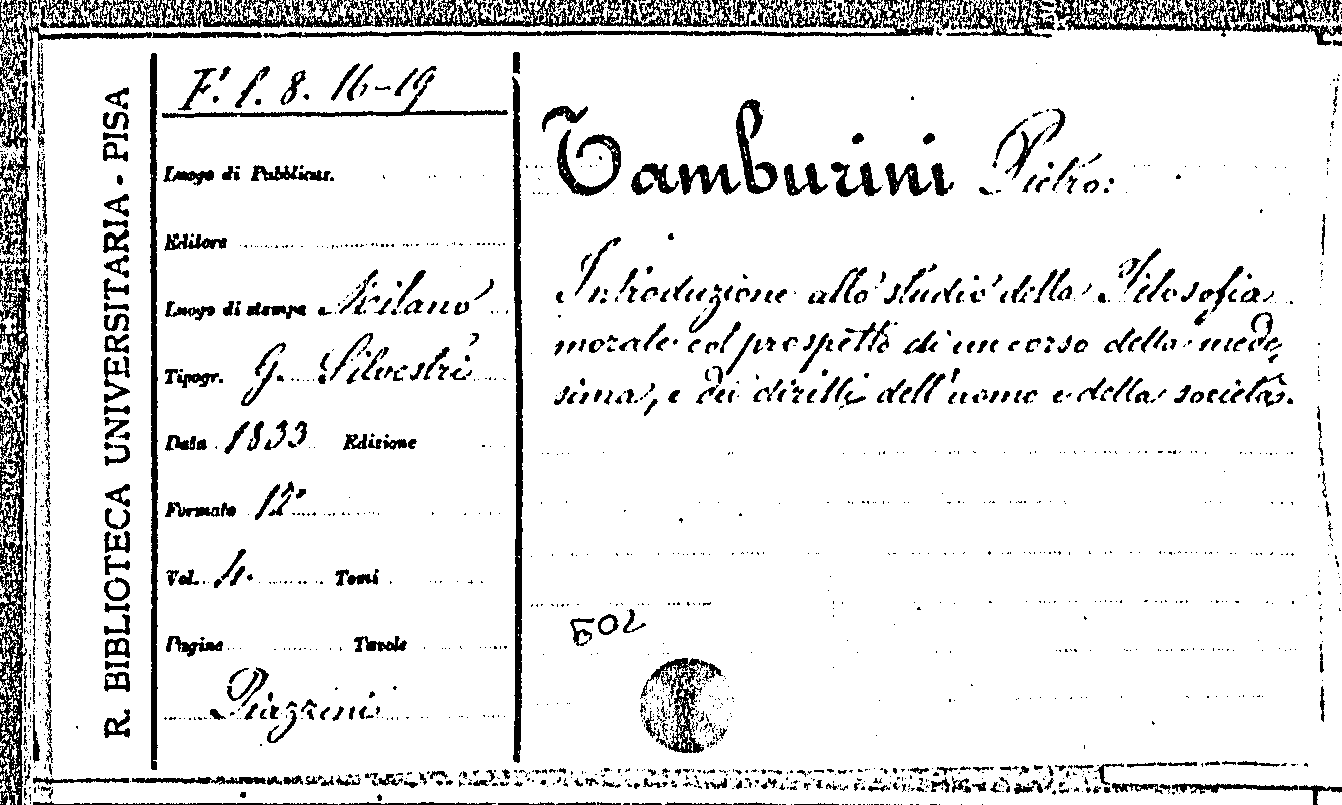 R. BIBLIOTECA UNIVERSITARIA - PISA
F. f. 8. 16-19
Luogo di Pubblicaz.
Editore
Luogo di stampa Milano
Tipogr. G. Silvestri
Data 1833 Edizione
Formato 12°
Vol. 4. Tomi
Pagine Tavole
Piazzini
Tamburini Pietro:
Introduzione allo studio della Filosofia
morale col prospetto di un corso della mede,
sima, e dei diritti dell'uomo e della società.